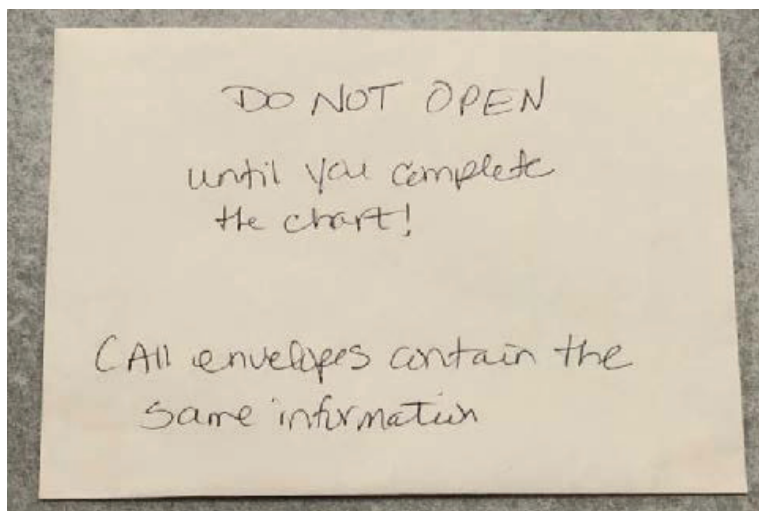 DO NOT OPEN
until you complete
the chart!
(All envelopes contain the
same information